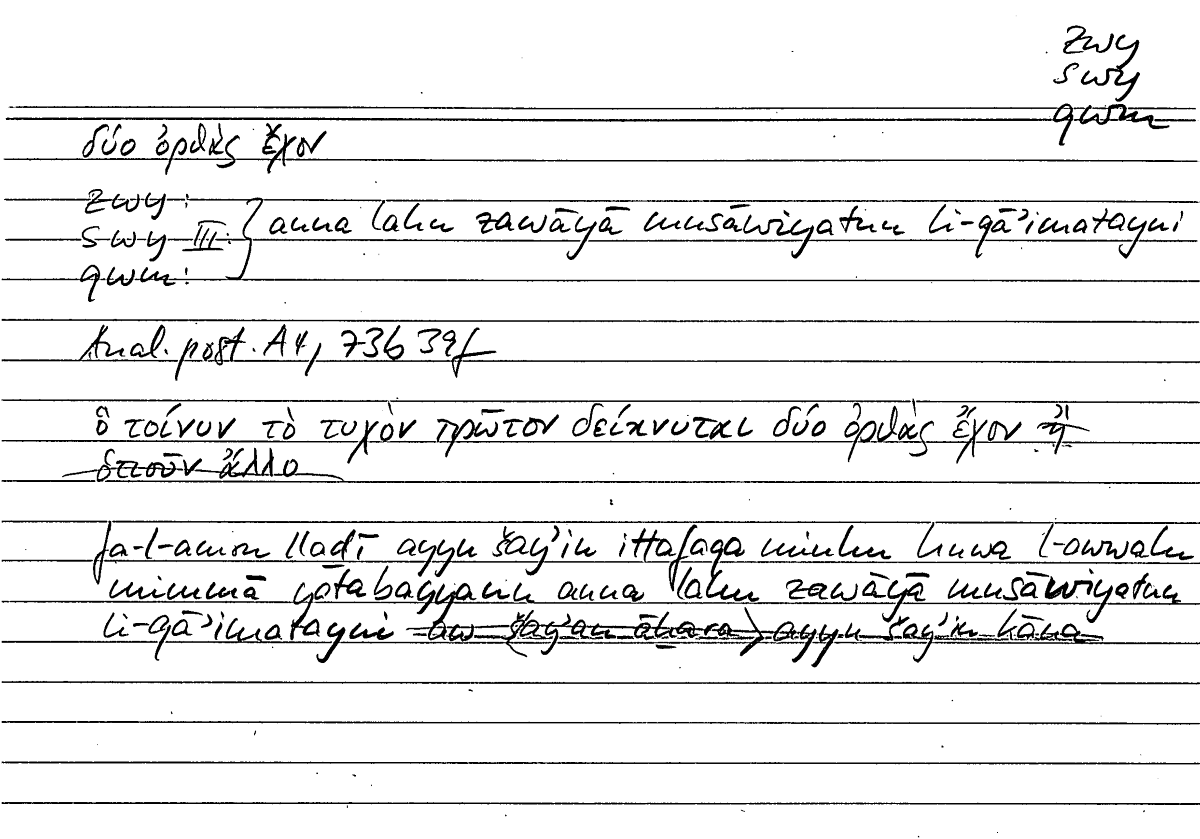 zwy
swy
qwm
δύο ὀρθὰς ἔχον
zwy:
swy III: } anna lahu zawāyā musāwiyatun li-qāʾimatayni
qwm:
Anal. post. A4, 73b 39f
ὃ τοίνυν τὸ τυχὸν πρῶτον δείκνυται δύο ὀρθὰς ἔχον ἢ
ὁτιοῦν ἄλλο
fa-l-amru lladī ayyu šayʾin ittafaqa minhu huwa l-awwalu
mimmā yatabayyanu anna lahu zawāyā musāwiyatun
li-qāʾimatayni aw (šayʾan āḫara) ayyu šayʾin kāna